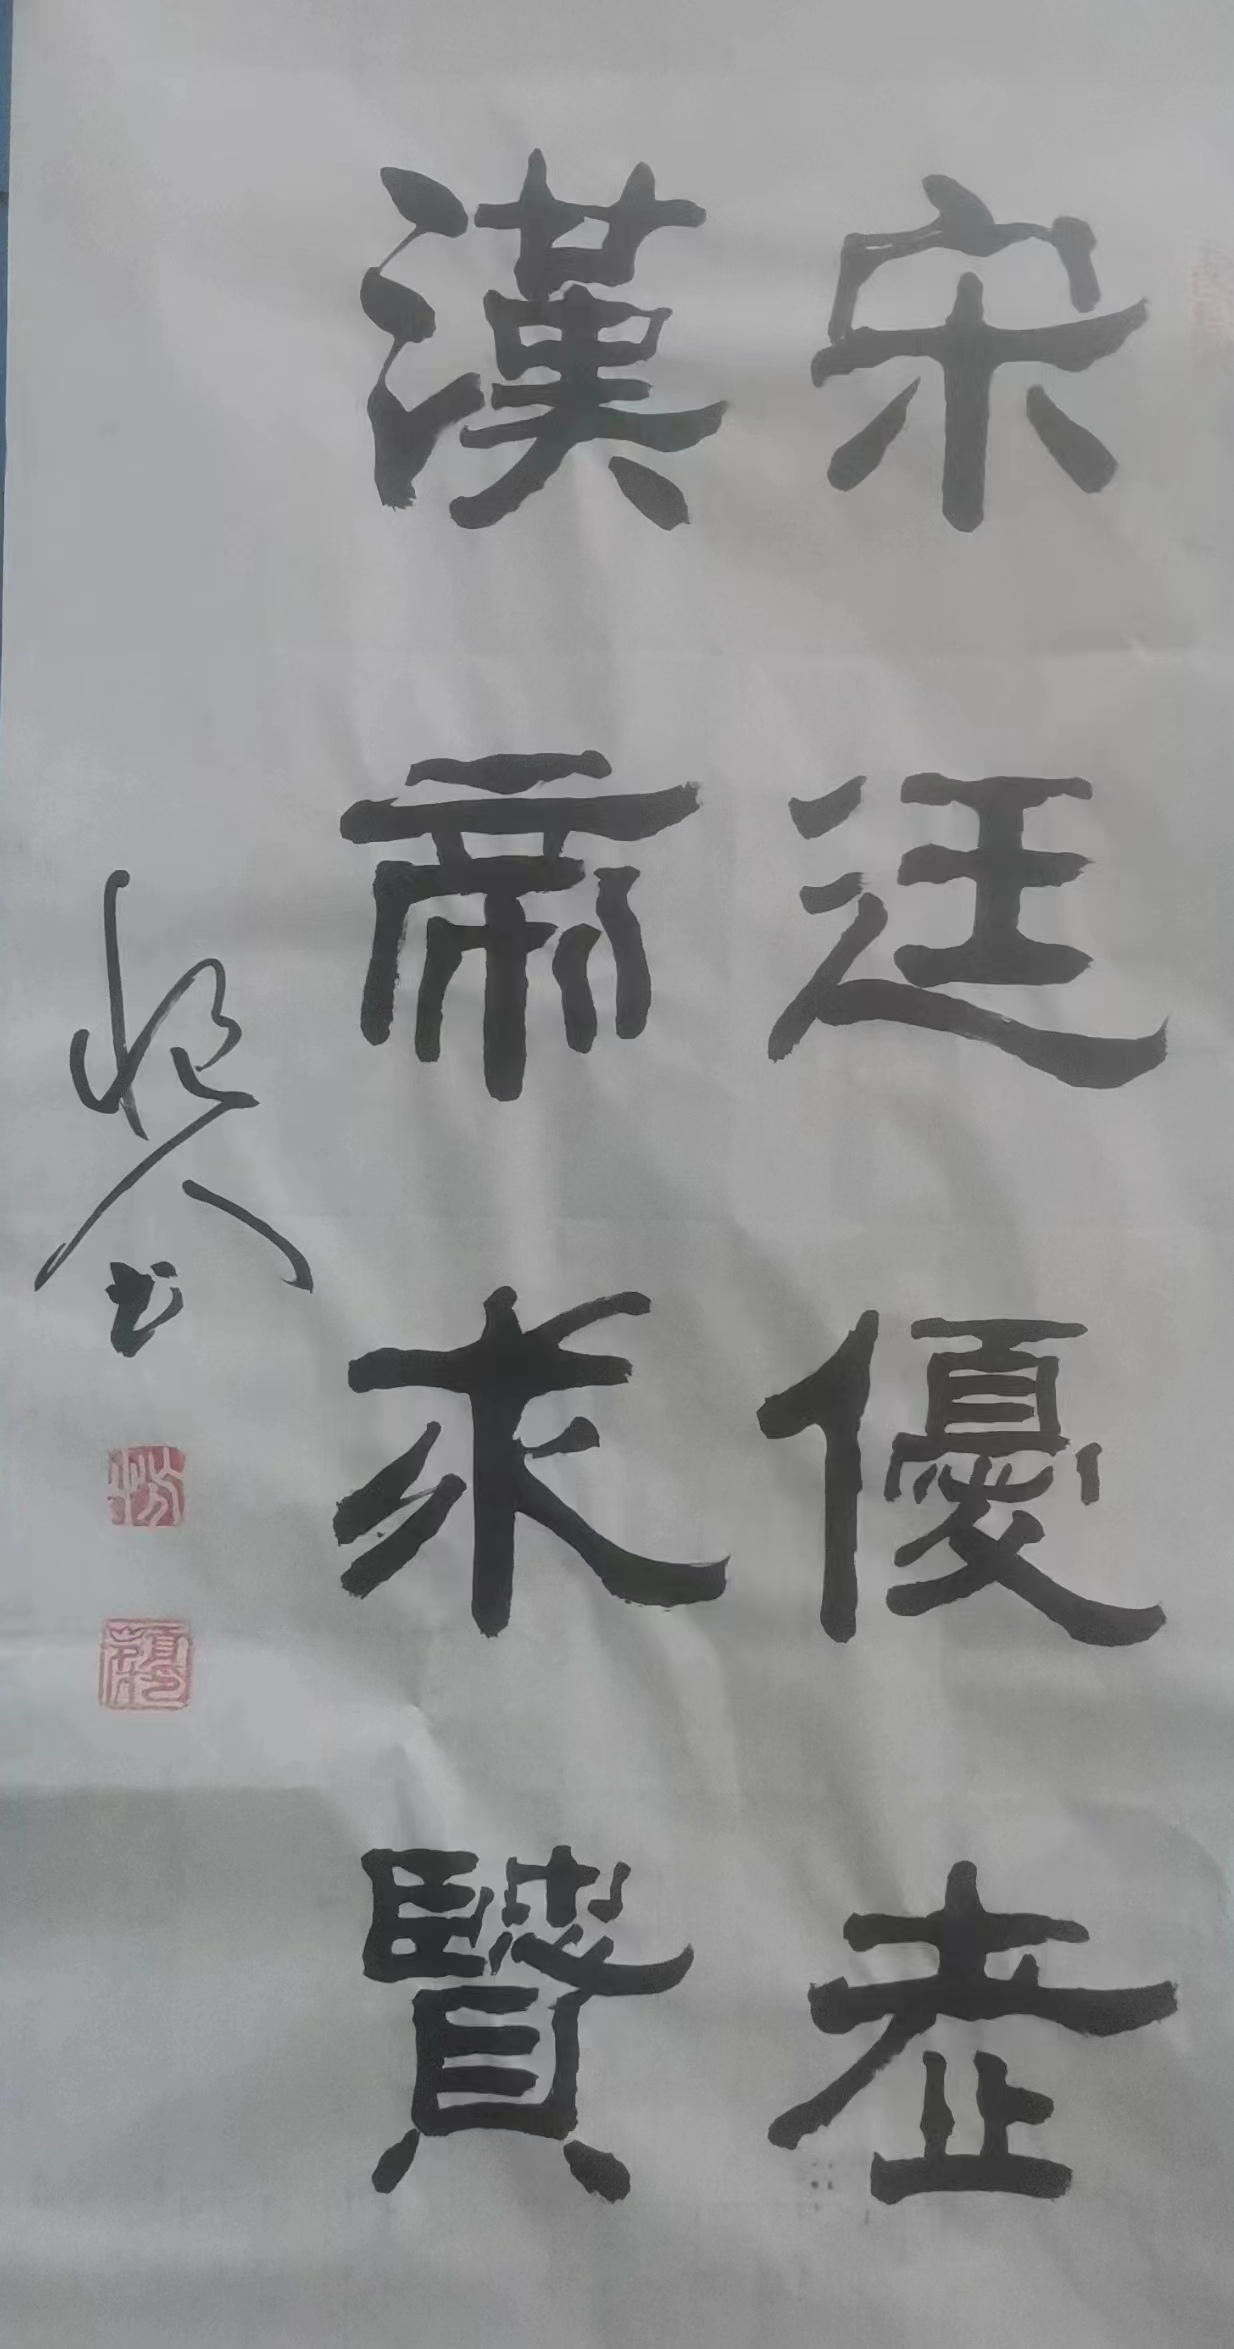 宋廷優老
漢帝求賢
书